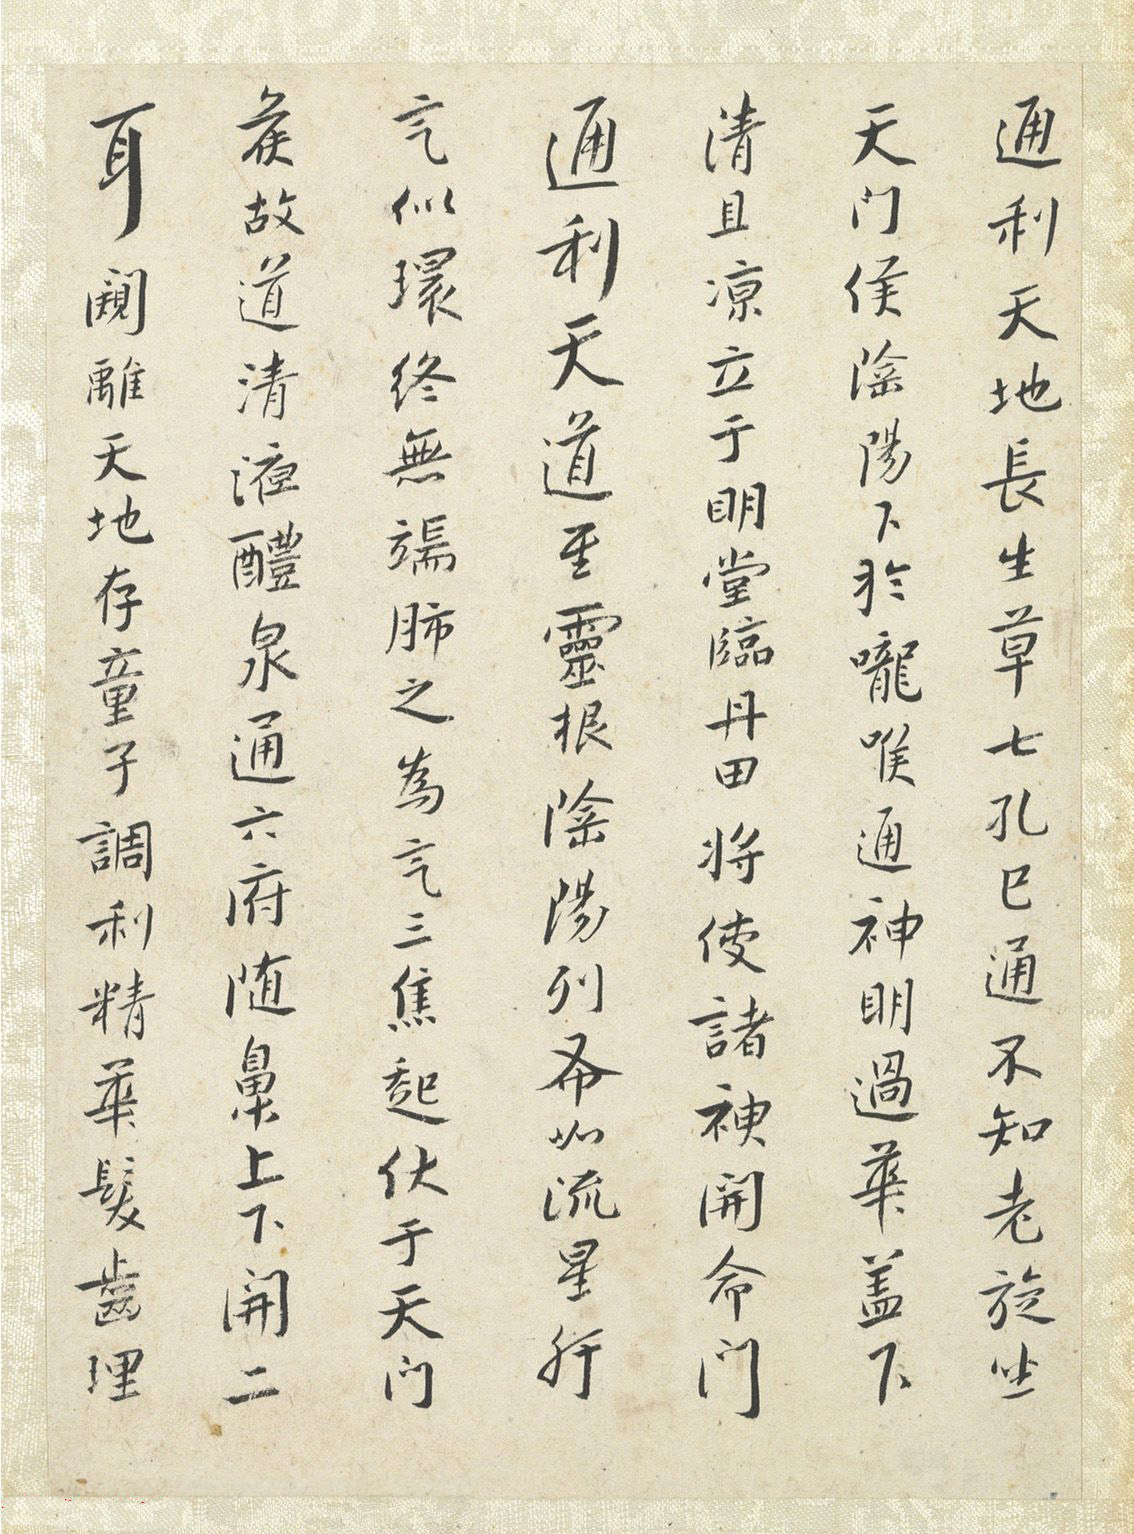 通利天地長生草七孔已通不知老旋坐
天門侯陰陽下於嚨喉通神明過華蓋下
清且涼立于明堂臨丹田將使諸神開命門
通利天道至靈根陰陽列布如流星行
气似環終無端肺之為气三焦起伏于天門
侯故道清液醴泉通六府随鼻上下開二
耳闚離天地存童子調利精華髮齒理